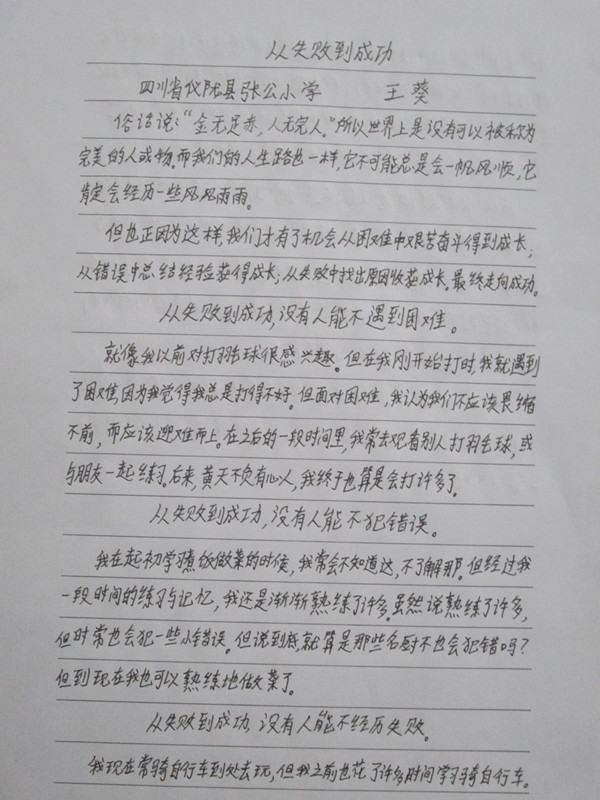 从失败到成功
四川省仪陇县张公小学 王葵
俗话说:“金无足赤,人无完人。”所以世界上是没有可以被称为
完美的人或物。而我们的人生路也一样,它不可能总是会一帆风顺,它
肯定会经历一些风风雨雨。
但也正因为这样,我们才有了机会从困难中艰苦奋斗得到成长;
从错误中总结经验获得成长;从失败中找出原因收获成长。最终走向成功。
从失败到成功,没有人能不遇到困难。
就像我以前对打羽毛球很感兴趣。但在我刚开始打时,我就遇到
了困难,因为我觉得我总是打得不好。但面对困难,我认为我们不应该畏缩
不前,而应该迎难而上。在之后的一段时间里,我常去观看别人打羽毛球,或
与朋友一起练习。后来,黄天不负有心人,我终于也算是会打许多了。
从失败到成功,没有人能不犯错误。
我在起初学习煮饭做菜的时候,我常会不知道这,不了解那。但经过我
一段时间的练习与记忆,我还是渐渐熟练了许多。虽然说熟练了许多,
但时常也会犯一些小错误。但说到底,就算是那些名厨不也会犯错吗?
但到现在我也可以熟练地做菜了。
从失败到成功,没有人能不经历失败。
我现在常骑自行车到处去玩,但我之前也花了许多时间学习骑自行车。